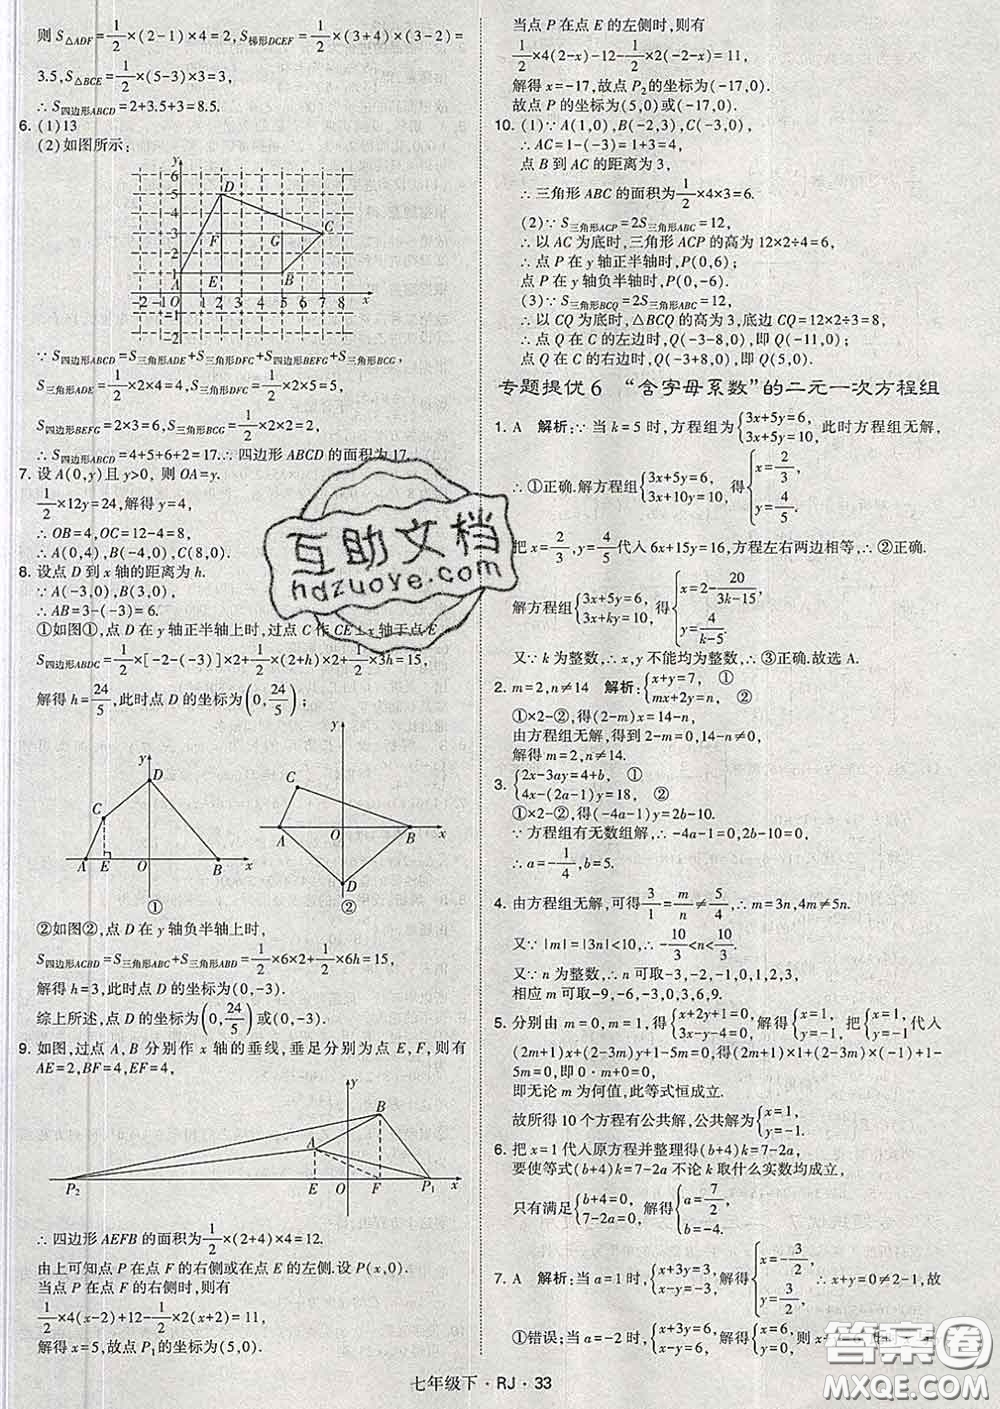 则 S△ADF=1/2×(2-1)×4=2,S梯形DCEF=1/2×(3+4)×(3-2)=
3.5,S△BCE=1/2×(5-3)×3=3,
∴S四边形ABCD=2+3.5+3=8.5.
6. (1)13
(2)如图所示:
y
6
5
4
3
2
1
D
F
G
C
A
E
B
-2 -1 O 1 2 3 4 5 6 7 8 x
-1
-2
∵S四边形ABCD=S三角形ADE+S三角形DFC+S四边形BEFG+S三角形BCG,
S三角形ADE=1/2×2×4=4,S三角形DFC=1/2×2×5=5,
S四边形BEFG=2×3=6,S三角形BCG=1/2×2×2=2,
∴S四边形ABCD=4+5+6+2=17.∴四边形ABCD的面积为17.
7. 设A(0,y)且y>0,则OA=y.
1/2×12y=24,解得y=4,
∴OB=4,OC=12-4=8,
∴A(0,4),B(-4,0),C(8,0).
8. 设点D到x轴的距离为h.
∵A(-3,0),B(3,0),
∴AB=3-(-3)=6.
①如图①,点D在y轴正半轴上时,过点C作CE⊥x轴于点E
S四边形ABDC=1/2×[-2-(-3)]×2+1/2×(2+h)×2+1/2×3h=15,
解得h=24/5,此时点D的坐标为(0,24/5);
y
D
C
A E O B x
①
y
C
A O B x
D
②
②如图②,点D在y轴负半轴上时,
S四边形ACBD=S三角形ABC+S三角形ABD=1/2×6×2+1/2×6h=15,
解得h=3,此时点D的坐标为(0,-3).
综上所述,点D的坐标为(0,24/5)或(0,-3).
9. 如图,过点A,B分别作x轴的垂线,垂足分别为点E,F,则有
AE=2,BF=4,EF=4,
y
B
A
P2 E O F P1 x
∴四边形AEFB的面积为1/2×(2+4)×4=12.
由上可知点P在点F的右侧或在点E的左侧.设P(x,0).
当点P在点F的右侧时,则有
1/2×4(x-2)+12-1/2×2(x+2)=11,
解得x=5,故点P1的坐标为(5,0).
当点P在点E的左侧时,则有
1/2×4(2-x)-12-1/2×2(-2-x)=11,
解得x=-17,故点P2的坐标为(-17,0).
故点P的坐标为(5,0)或(-17,0).
10. (1)∵A(1,0),B(-2,3),C(-3,0),
∴AC=1-(-3)=1+3=4,
点B到AC的距离为3,
∴三角形ABC的面积为1/2×4×3=6.
(2)∵S三角形ACP=2S三角形ABC=12,
∴以AC为底时,三角形ACP的高为12×2÷4=6,
∴点P在y轴正半轴时,P(0,6);
点P在y轴负半轴时,P(0,-6).
(3)∵S三角形BCQ=2S三角形ABC=12,
∴以CQ为底时,△BCQ的高为3,底边CQ=12×2÷3=8,
∴点Q在C的左边时,Q(-3-8,0),即Q(-11,0);
点Q在C的右边时,Q(-3+8,0),即Q(5,0).
专题提优6 “含字母系数”的二元一次方程组
1. A 解析:∵当k=5时,方程组为{3x+5y=6, 3x+5y=10, 此时方程组无解,
∴①正确.解方程组{3x+5y=6, 3x+10y=10, 得{x=2/3, y=4/5.
把x=2/3,y=4/5代入6x+15y=16,方程左右两边相等,∴②正确.
解方程组{3x+5y=6, 3x+ky=10, 得{x=2-20/(3k-15), y=4/(k-5).
又∵k为整数,∴x,y不能均为整数,∴③正确.故选A.
2. m=2,n≠14 解析:{x+y=7, ① mx+2y=n, ②
①×2-②,得(2-m)x=14-n,
由方程组无解,得到2-m=0,14-n≠0,
解得m=2,n≠14.
3. {2x-3ay=4+b, ① 4x-(2a-1)y=18, ②
①×2-②,得(-4a-1)y=2b-10.
∵方程组有无数组解,∴-4a-1=0,2b-10=0,
∴a=-1/4,b=5.
4. 由方程组无解,可得3/1=m/n≠5/4,∴m=3n,4m≠5n.
又∵|m|=|3n|<10,∴-10/3<n<10/3.
又∵n为整数,∴n可取-3,-2,-1,0,1,2,3,
相应m可取-9,-6,-3,0,3,6,9.
5. 分别由m=0,m=1,得{x+2y+1=0, 3x-y-4=0, 解得{x=1, y=-1. 把{x=1, y=-1代入
(2m+1)x+(2-3m)y+1-5m=0,得(2m+1)×1+(2-3m)×(-1)+1-
5m=0,即0·m+0=0,
即无论m为何值,此等式恒成立.
故所得10个方程有公共解,公共解为{x=1, y=-1.
6. 把x=1代入原方程并整理得(b+4)k=7-2a,
要使等式(b+4)k=7-2a不论k取什么实数均成立,
只有满足{b+4=0, 7-2a=0, 解得{a=7/2, b=-4.
7. A 解析:当a=1时,{x+3y=3, x-y=-3, 解得{x=-3/2, y=3/2, ∴x+y=0≠2-1,故
①错误;当a=-2时,{x+3y=6, x-y=-6, 解得
七年级下·RJ·33
互助文档
hdzuoye.com
答案圈
MXQE.COM